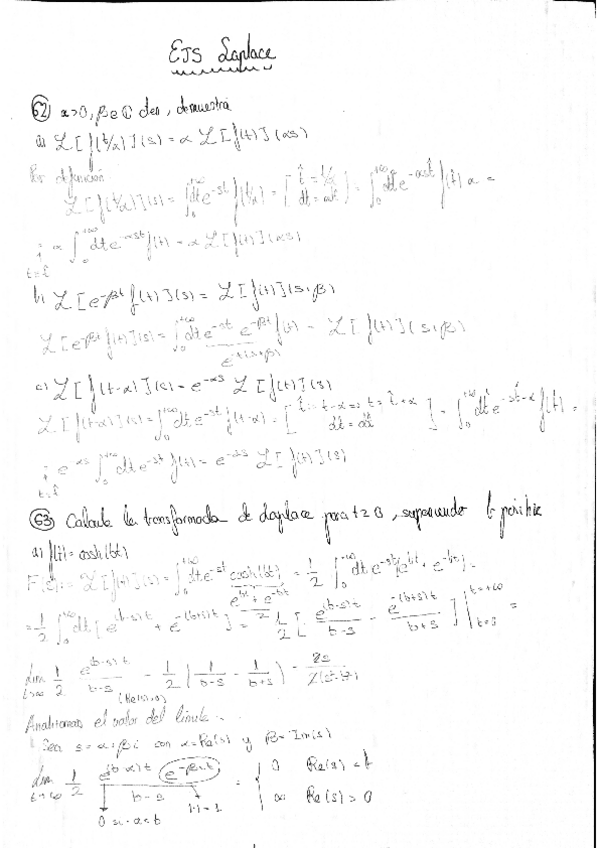 EJS Laplace
62) α>0, β∈ℂ , demuestra
a) ℒ[f(t/α)](s) = α ℒ[f(t)](αs)
Por definición
ℒ[f(t/α)](s) = ∫₀^{+∞} dt e^{-st} f(t/α) = [t̂ = t/α dt = αdt̂] = ∫₀^{+∞} dt̂ e^{-αst̂} f(t̂) α =
= α ∫₀^{+∞} dt e^{-αst} f(t) = α ℒ[f(t)](αs)
t=t̂
b) ℒ[e^{-βt} f(t)](s) = ℒ[f(t)](s+β)
ℒ[e^{-βt} f(t)](s) = ∫₀^{+∞} dt e^{-st} e^{-βt} f(t) = ℒ[f(t)](s+β)
e^{-t(s+β)}
c) ℒ[f(t-α)](s) = e^{-αs} ℒ[f(t)](s)
ℒ[f(t-α)](s) = ∫₀^{+∞} dt e^{-st} f(t-α) = [t̂ = t-α => t = t̂+α dt = dt̂] = ∫₀^{+∞} dt̂ f(t̂) =
= e^{-αs} ∫₀^{+∞} dt e^{-st} f(t) = e^{-αs} ℒ[f(t)](s)
t=t̂
63) Calcula la transformada de Laplace para t≥0, suponiendo b
a) f(t) = cosh(bt)
F(s) = ℒ[f(t)](s) = ∫₀^{+∞} dt e^{-st} cosh(bt) = 1/2 ∫₀^{+∞} dt e^{-st} (e^{bt} + e^{-bt}) =
(e^{bt} + e^{-bt})/2
= 1/2 ∫₀^{+∞} dt [e^{(b-s)t} + e^{-(b+s)t}] = 1/2 [e^{(b-s)t}/(b-s) - e^{-(b+s)t}/(b+s)] |_{t=0}^{t=+∞} =
lim_{t→∞} 1/2 e^{(b-s)t}/(b-s) - 1/2 (1/(b-s) - 1/(b+s))
Analizamos el valor del límite
Sea s = α+βi con α=Re(s) y β=Im(s)
lim_{t→∞} 1/2 e^{(b-α)t} e^{-βit} / (b-s) = { 0 Re(s)
∞ Re(s)
0 si